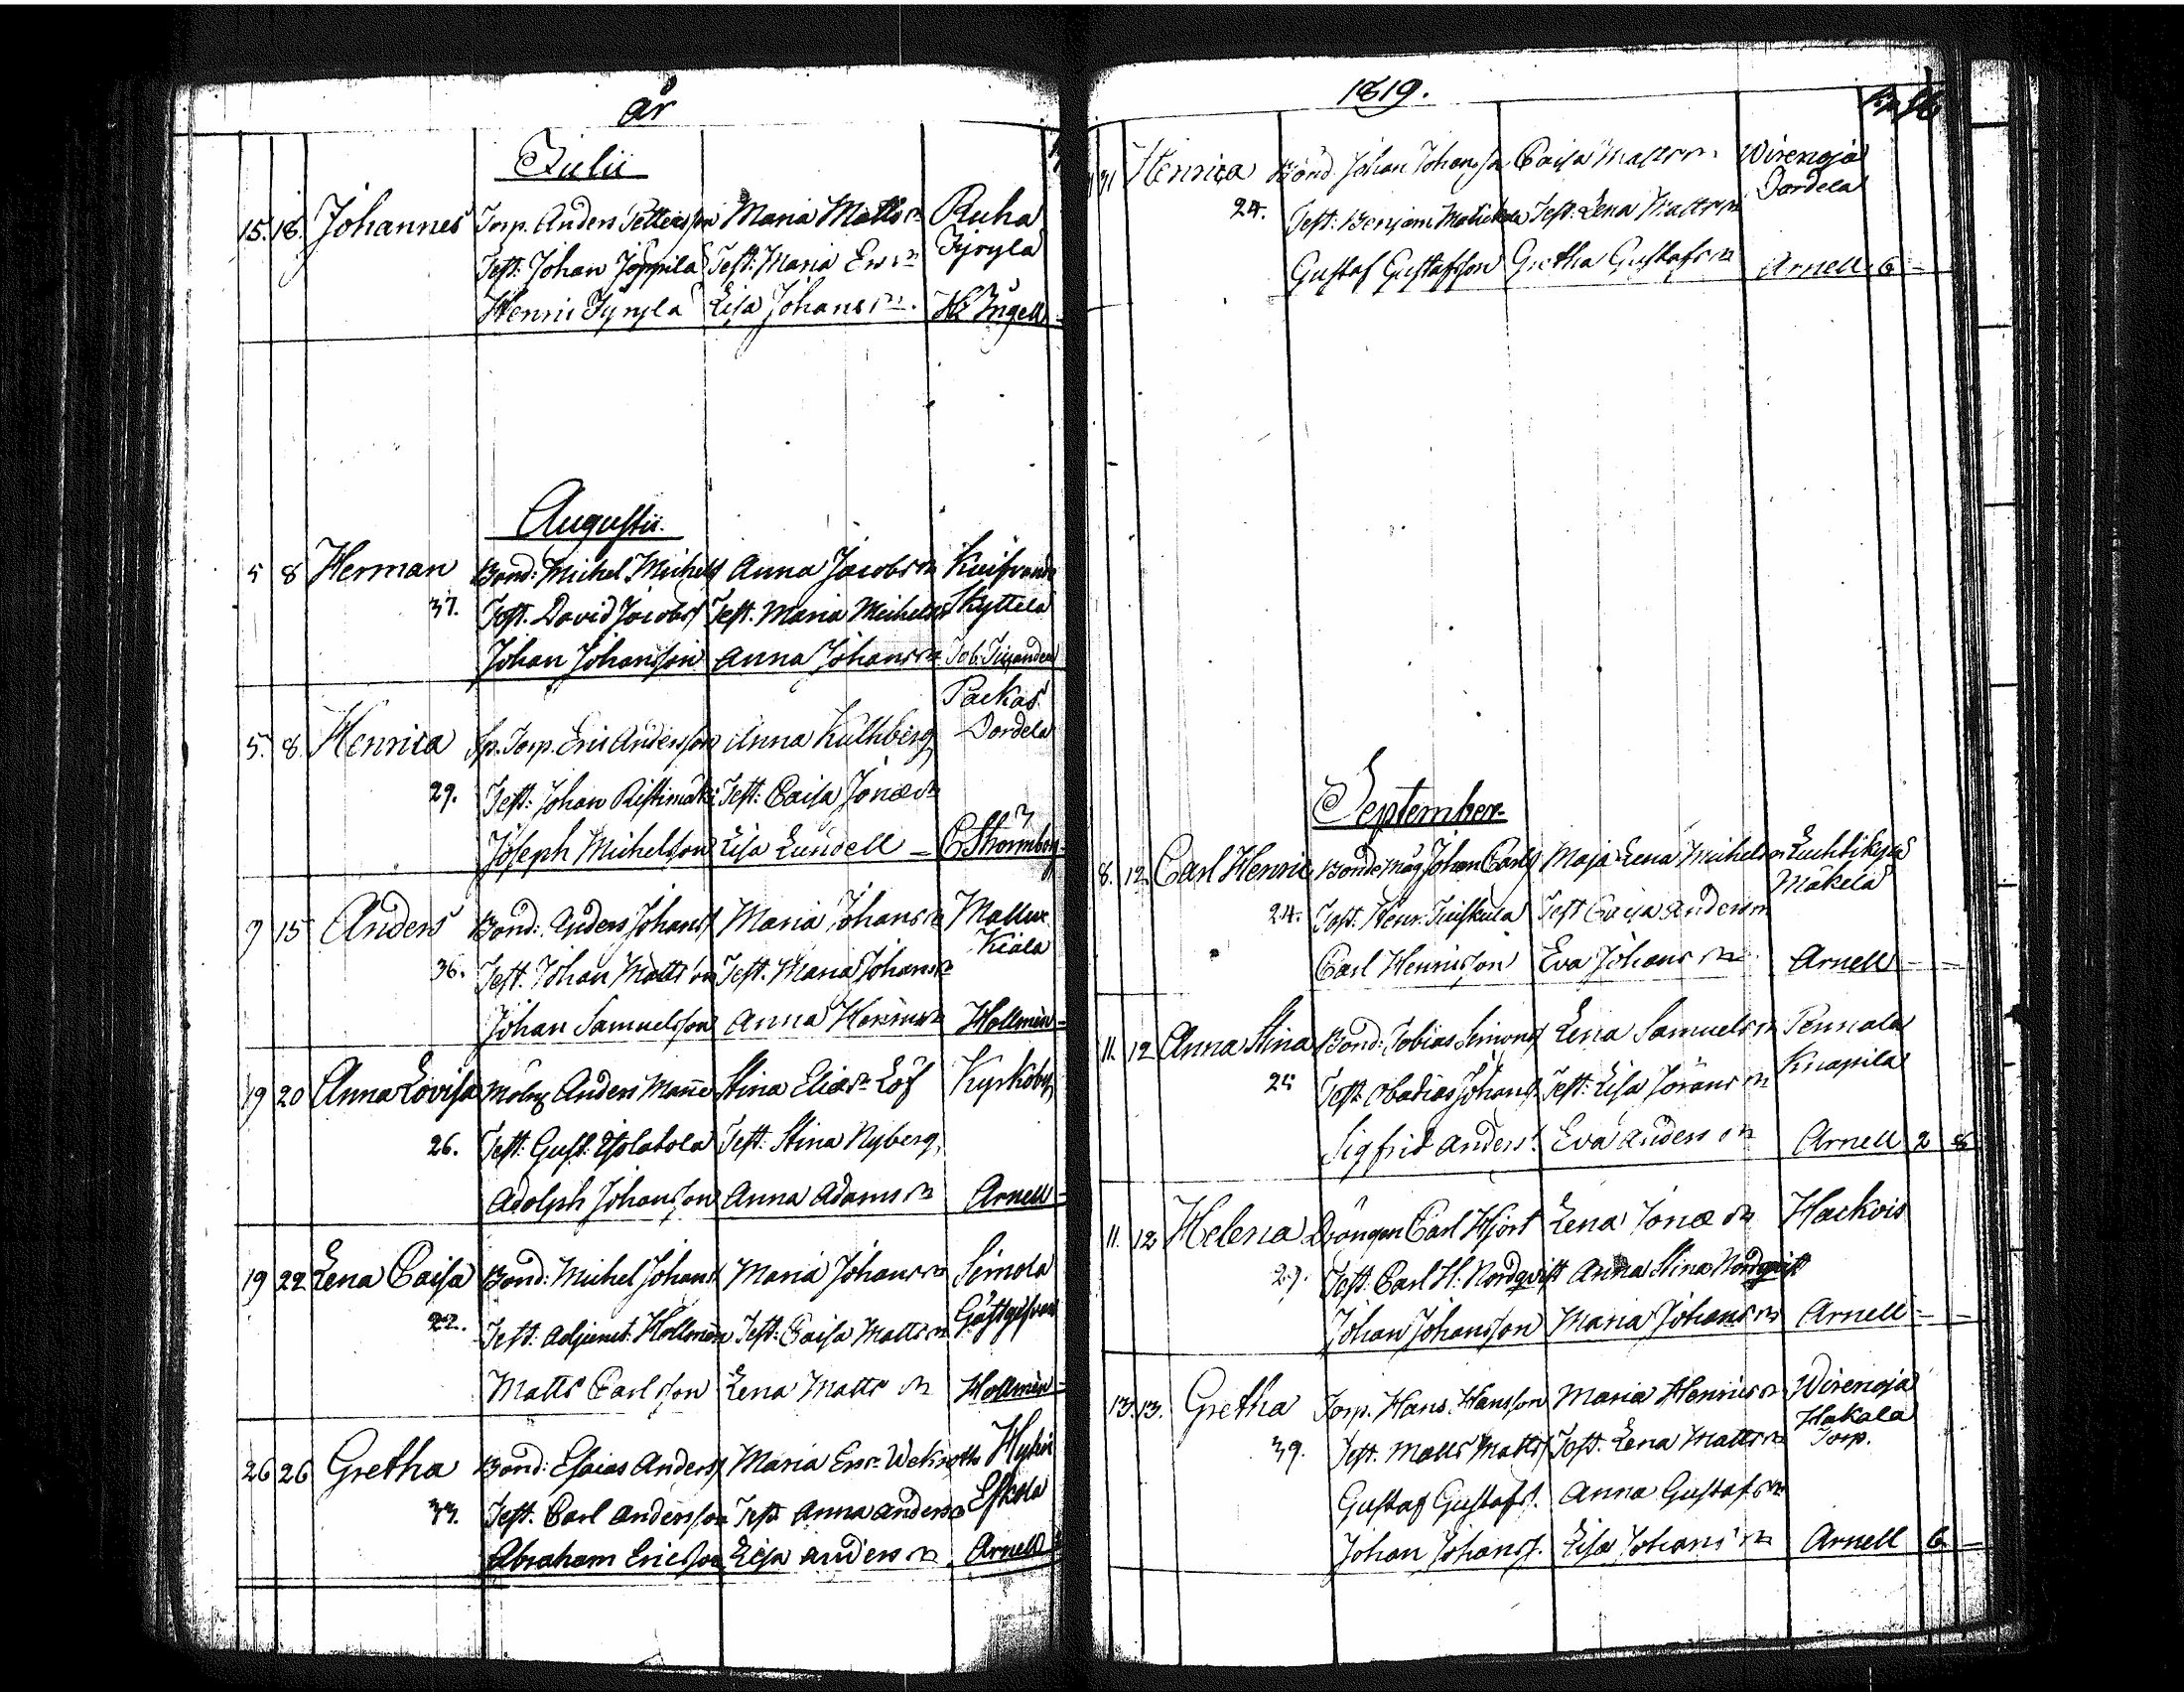 år
Julii
15. 18. Johannes Torp. Anders Pettersson Maria Mattsdr Ruha
Test: Johan Joppila Test: Maria Ersdr Jyryla
Henric Jyryla Lisa Johansdr. H: Ingell
Augustii.
5 8 Herman Bond: Michel Michels Anna Jacobsdr
37. Test. David Jacobs Test. Maria Michelsdr Kyttela
Johan Johansson Anna Johansdr
Packas
5. 8. Henrica Sp. Torp. Eric Andersson Anna Kullberg Dordela
29. Test: Johan Ristimäki Test: Caisa Jonædr
Joseph Michelsson Lisa Lundell C Stormbom
9 15 Anders Bond: Anders Johans Maria Johansdr Mallux
36. Test. Johan Mattsson Test. Maria Johansdr Kiala
Johan Samuelsson Anna Henricsdr Hollmèn
19 20 Anna Lovisa Anders Manne Stina Eliædr Löf Kyrkoby
26. Test: Gust: Test: Stina Nyberg,
Adolph Johansson Anna Adamsdr Arnell
19 22 Lena Caisa Bond: Michel Johans Maria Johansdr Simola
22. Test: Adjunct: Hollmèn Test: Caisa Mattsdr Gästgifveri
Matts Carlsson Lena Mattsdr Hollmèn
26 26 Gretha Bond: Esaias Anders Maria Ersdr Wekroth
33. Test. Carl Andersson Test. Anna Andersdr Eskola
Abraham Ericsson Lisa Andersdr Arnell
1819.
31 Henrica Bond Johan Johansson Caisa Mattsdr Wirenoja
24. Test: Benjam Test: Lena Mattsdr Dordela
Gustaf Gustafsson Gretha Gustafsdr Arnell 6 -
September
8. 12 Carl Henric Bonde Måg Johan Carls Maja Lena Michelsdr Luchtikylä
24. Test. Henr. Test Caisa Andersdr Mäkelä
Carl Henricsson Eva Johansdr Arnell - -
11. 12 Anna Stina Bond: Tobias Simons Lena Samuelsdr Pennala
25 Test. Obadias Johans Test: Lisa Göransdr Knapila
Sigfrid Anders. Eva Andersdr Arnell 2 8
11. 12 Helena Drängen Carl Hjort Lena Jonædr Hackois
29. Test: Carl H. Nordqvist Anna Stina Nordqvist
Johan Johansson Maria Johansdr Arnell - -
13. 13. Gretha Torp. Hans Hansson Maria Henricsdr Wirenoja
39. Test. Matts Matts Test. Lena Mattsdr Hakala Torp.
Gustaf Gustafs. Anna Gustafsdr
Johan Johans. Lisa Johansdr Arnell 6 -